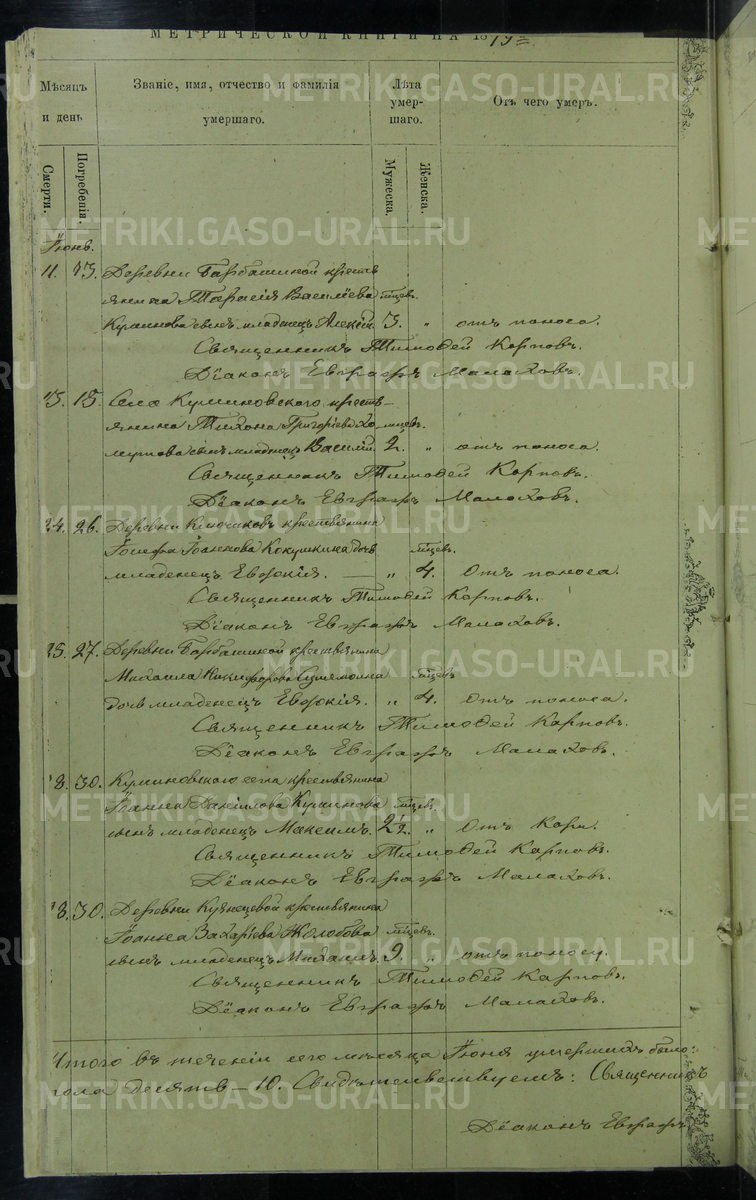 МЕТРИЧЕСКОЙ КНИГИ НА 18
Мѣсяцъ и день
Званіе, имя, отчество и фамилія умершаго.
Лѣта умершаго.
Отъ чего умеръ.
Смерти.
Погребенія.
Мужеска.
Женска.
Іюнь.
11. 13. Деревни Барбашиной кресть
янина Тарасія Василіева мѣсяцев.
Куминова сынъ младенецъ Алексій. 3. „ отъ поноса.
Священникъ Тимоѳей Карповъ.
Діаконъ Евграфъ Малаховъ.
13. 15. Села Куминовскаго кресть-
янина Тихона Григоріева мѣсяцев.
сынъ младенецъ Василій. 2. „ отъ поноса.
Священникъ Тимоѳей Карповъ.
Діаконъ Евграфъ Малаховъ.
24. 26. Деревни Ключиковъ крестьянина
Іосифа Іоаннова Кокушкина дочь мѣсяцев.
младенецъ Евфикія. — „ 4. Отъ поноса.
Священникъ Тимоѳей Карповъ.
Діаконъ Евграфъ Малаховъ.
25. 27. Деревни Барбашиной крестьянина
Михаила Никифорова мѣсяцев
дочь младенецъ Евфикія. „ 4. Отъ поноса.
Священникъ Тимоѳей Карповъ.
Діаконъ Евграфъ Малаховъ.
28. 30. Куминовскаго села крестьянина
Іоанна Даніилова Куминова мѣсяцев.
сынъ младенецъ Максимъ. 2½. „ Отъ Кори.
Священникъ Тимоѳей Карповъ.
Діаконъ Евграфъ Малаховъ.
28. 30. Деревни Кузнецовой крестьянина
Іоанна Захаріева Жолобова мѣсяцев.
сынъ младенецъ Михаилъ 9. „ отъ поносу.
Священникъ Тимоѳей Карповъ.
Діаконъ Евграфъ Малаховъ.
Итого въ теченіи сего мѣсяца Іюня умершихъ было:
пола десять — 10. Свидѣтельствуемъ: Священникъ
Діаконъ Евграфъ
METRIKI.GASO-URAL.RU